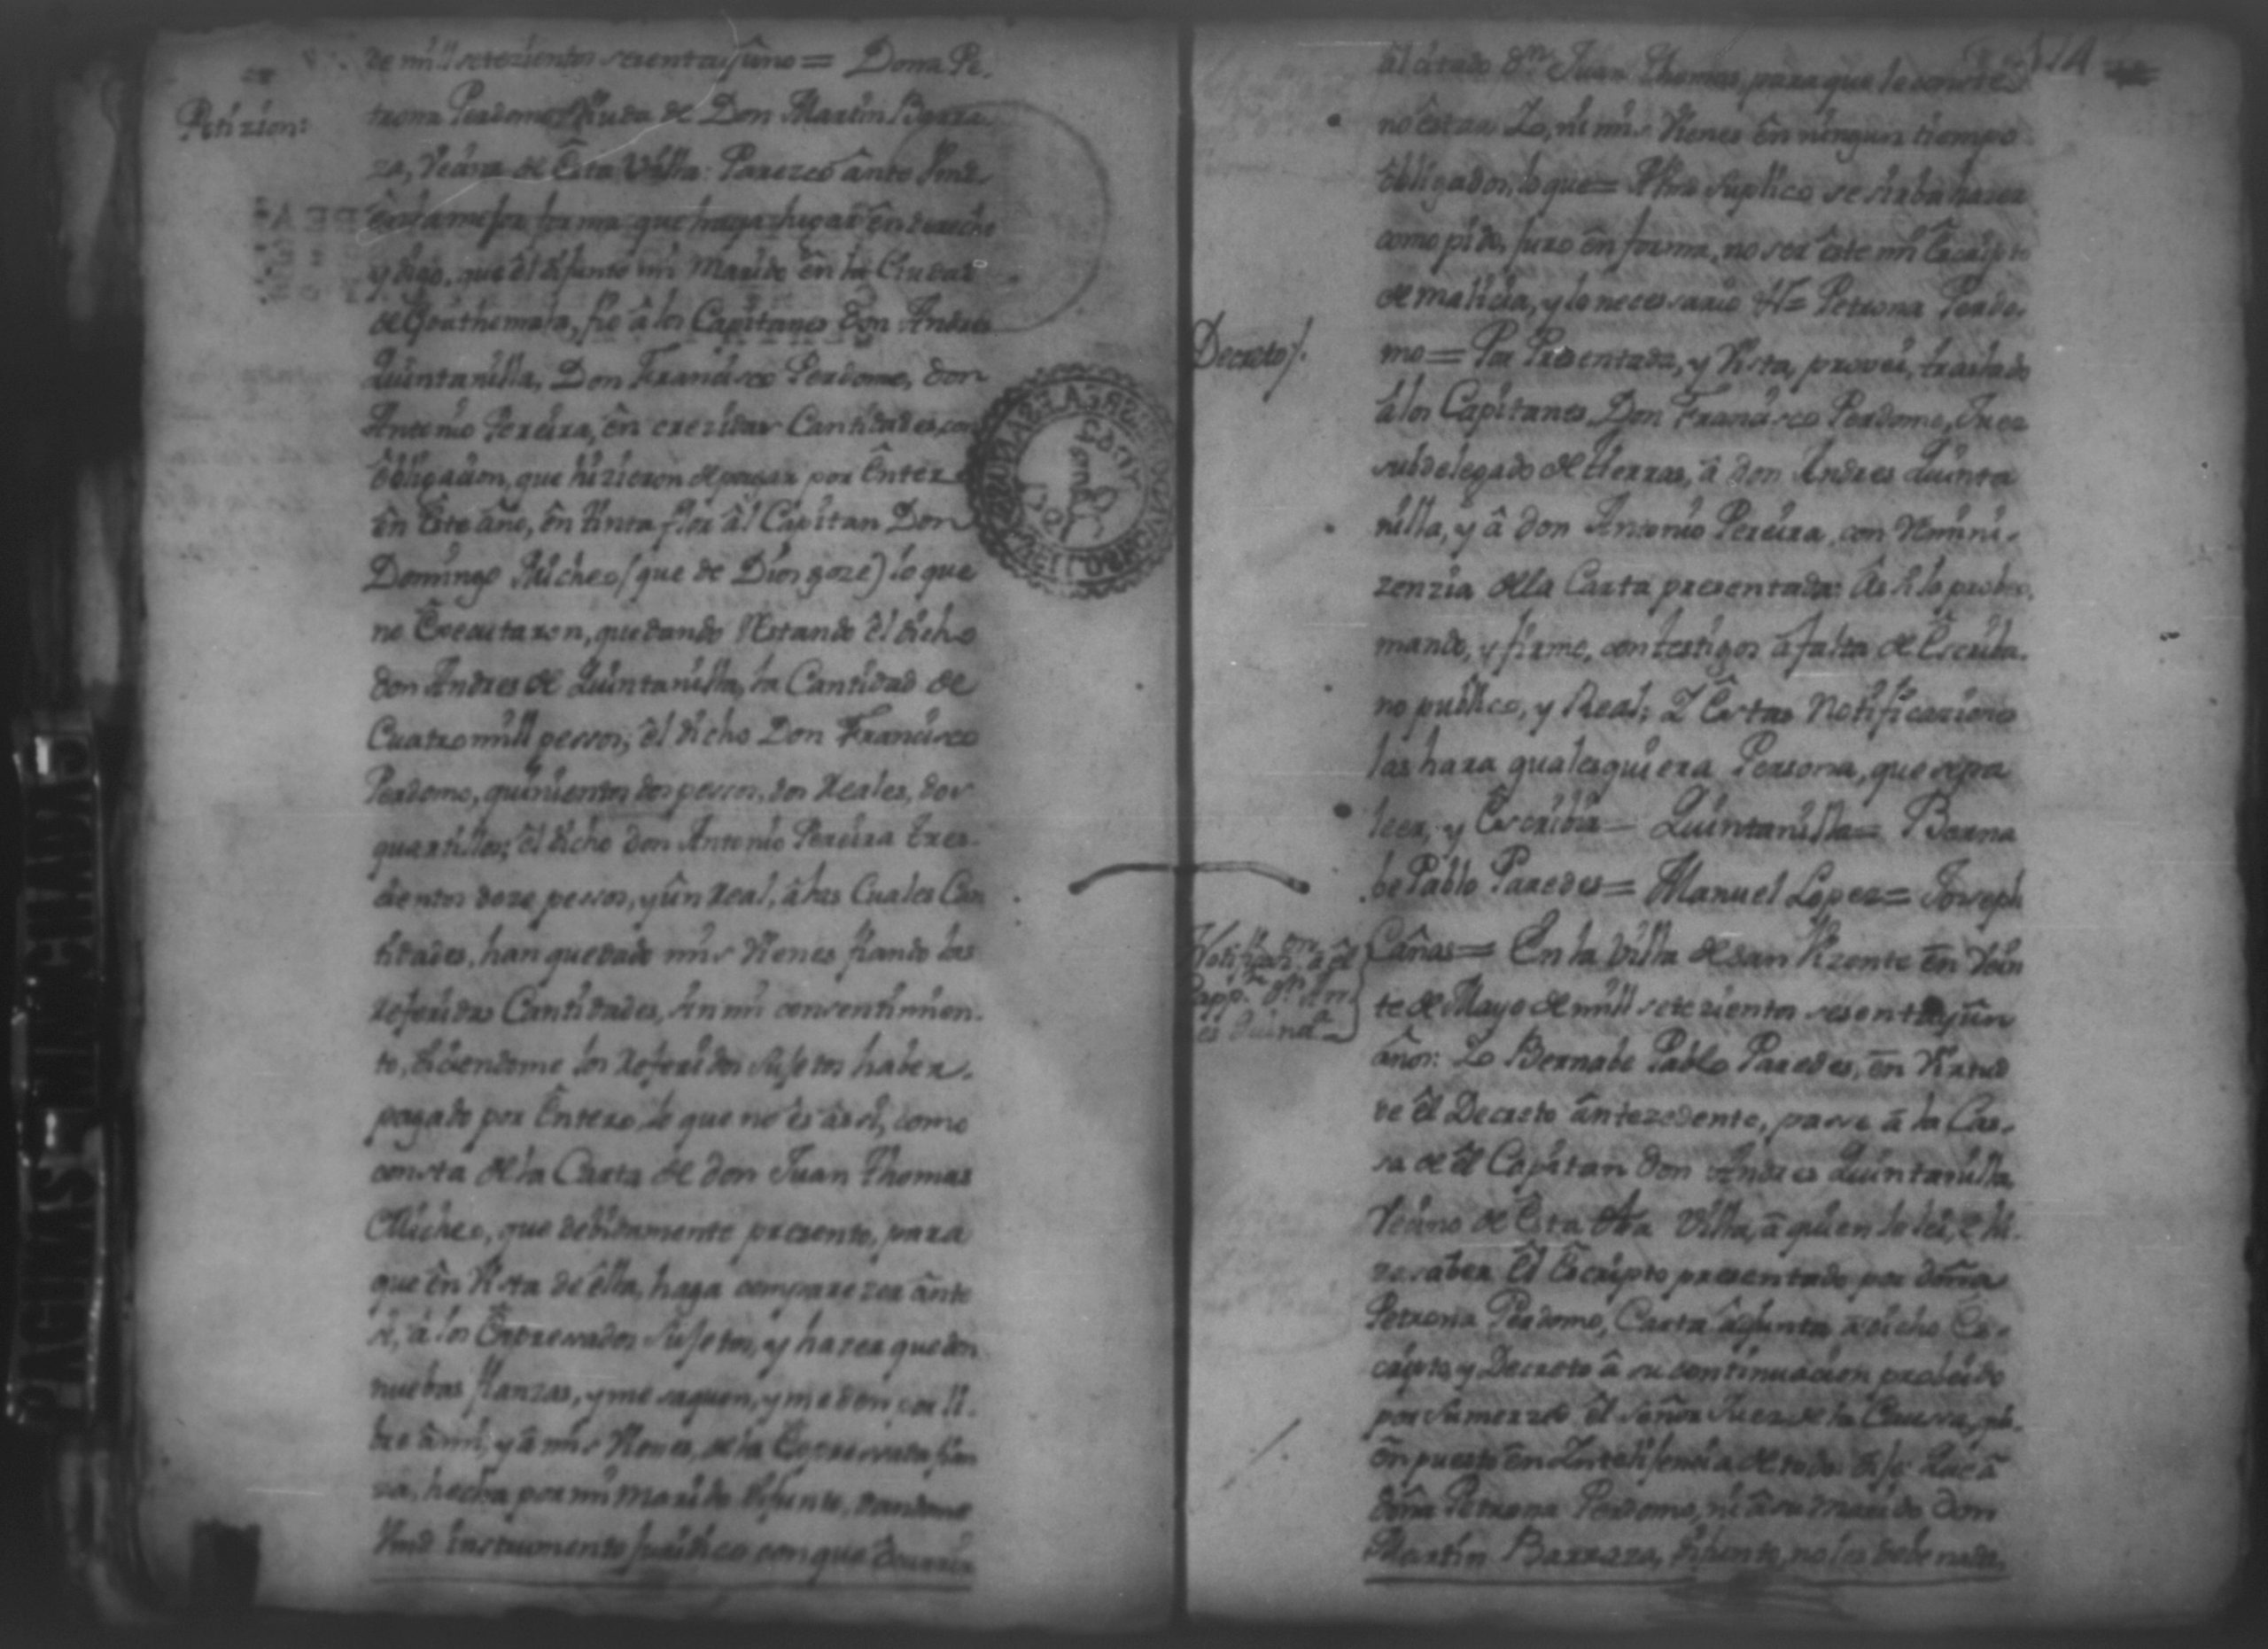 de mill setezientos sesenta, y ûno = Dona Pe-
Petizion:
trona Perdomo, Viuda de Don Martin Barra-
za, Vezina de Êsta Villa: Parezco ânte Vmd
ên la mejor forma que haya lugar ên derecho
y digo, que êl difunto mi Marido ên la Ciudad
de Goathemala, fio â los Capitanes Don Andres
Quintanilla, Don Francisco Perdomo, don
Antonio Pereira, ên crezidas Cantidades, con
ôbligacion, que hizieron de pagar por Êntero
ên Êste âño, ên tinta flor âl Capitan Don
Domingo Micheo (que de Dios goze) lo que
no Êxecutaron, quedando Restando êl dicho
don Andres de Quintanilla, la Cantidad de
Cuatro mill pessos; êl dicho Don Francisco
Perdomo, quinientos dos pessos, dos Reales, dos
quartillos; êl dicho don Antonio Pereira tres-
cientos doze pessos, y ûn Real, â las Cuales Can
tidades, han quedado mis Vienes fiando las
referidas Cantidades, sin mi consentimien-
to, diciendome los referidos Sujetos haber
pagado por Êntero, lo que no ês âssi, como
consta de la Carta de don Juan Thomas
Micheo, que debidamente presento, para
que ên Vista de êlla, haga comparezer ânte
si, â los Êxpressados Sujetos, y hazer que den
nuebas fianzas, y me saquen, y me den por li-
bre â mi, y â mis Vienes, de la Êxpressada fian
za, hecha por mi marido difunto, dandome
Vmd instrumento juridico con que Ocurrir
514
âl citado Dn. Juan Thomas, para que le conste
no êstar Yo, ni mis Vienes ên ningun tiempo
ôbligados, lo que = A Vmd Suplico se sirba hazer
como pido, juro ên forma, no ser êste mi Êscripto
de malicia, y lo necessario &a = Petrona Perdo-
Decreto/.
mo = Por Presentada, y Vista, provei, traslado
â los Capitanes Don Francisco Perdomo, Juez
subdelegado de tierras, â don Andres Quinta
nilla, y â don Antonio Pereira, con Remini-
zenzia de la Carta presentada: Âssi lo probeo,
mando, y firmo, con testigos â falta de Êscriba-
no publico, y Real; Y Êstas Notificaciones
las hara qualesquiera Persona, que sepa
leer, y Êscribir = Quintanilla = Berna
be Pablo Paredes = Manuel Lopez = Joseph
Cañas = En la Villa de san Vizente ên Vein
te de Mayo de mill setezientos sesenta, y ûn
âños: Yo Bernabe Pablo Paredes, ên Virtud
de êl Decreto ântezedente, passe â la Cas-
sa de êl Capitan don Andres Quintanilla,
Vecino de Êsta dha Villa, â quien le lei, e hi-
ze saber êl Êscripto presentado por doña
Petrona Perdomo, Carta âdjunta a dicho Es-
cripto, y Decreto â su continuacion probeido
por su merzed êl señor Juez de la Caussa, qui-
ên puesto ên Intelijencia de todo dijo: Que â
doña Petrona Perdomo, ni â su marido don
Martin Barraza, difunto, no les debe nada.